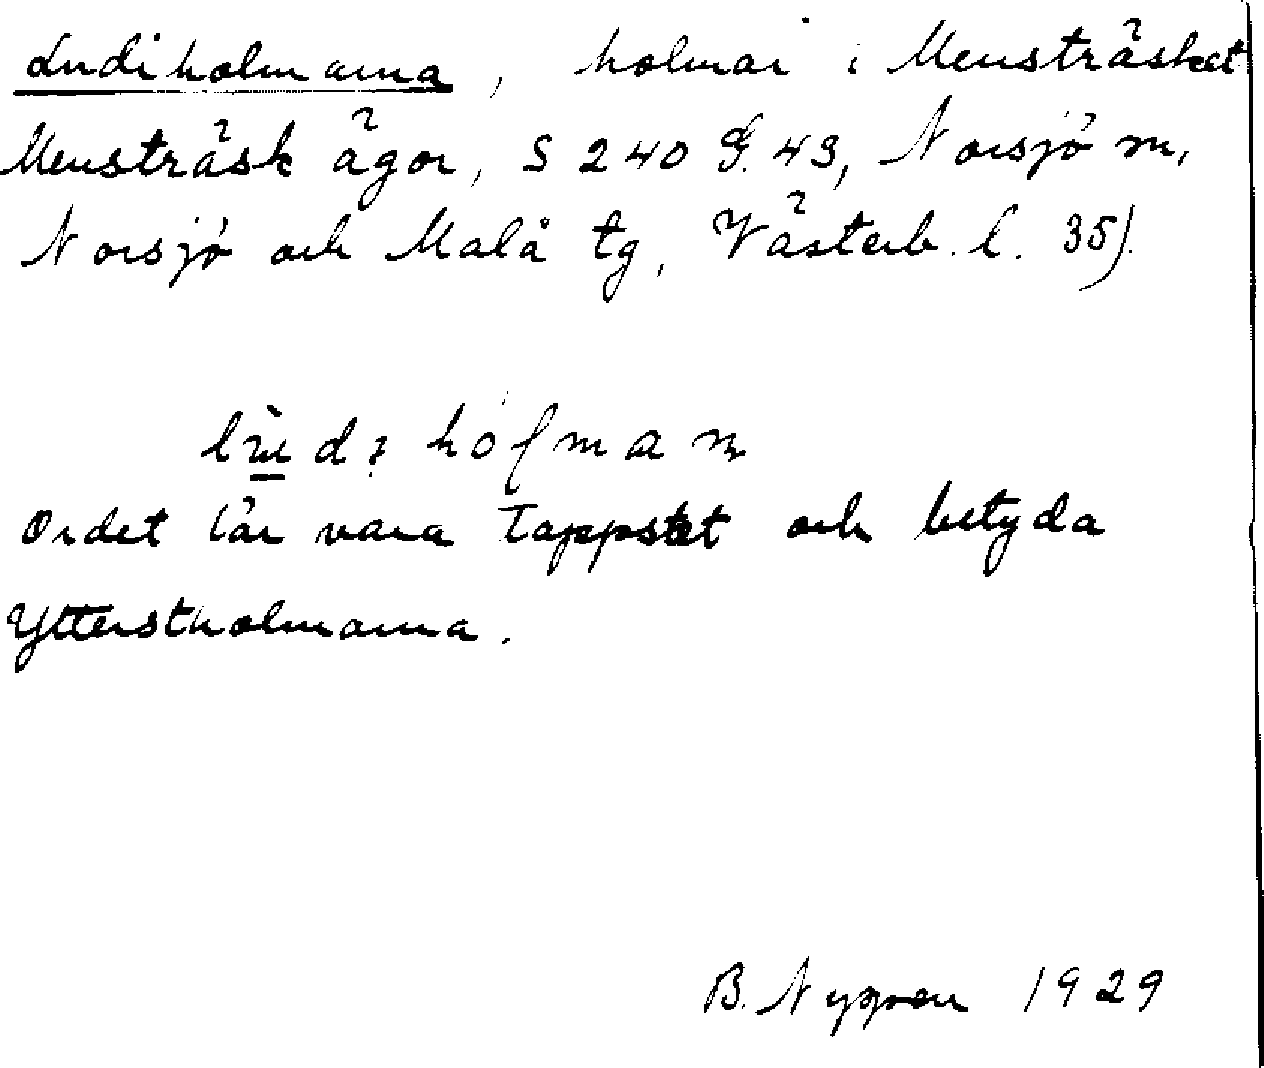 Lndiholmarna, holmar i Mensträsket
Mensträsk ägor, S 240 G. 43, Norsjö sn,
Norsjö och Malå tg, Västerb. l. 35).
hólman
Ordet lär vara lappskt och betyda
Ytterstholmarna.
B. Nygren 1929